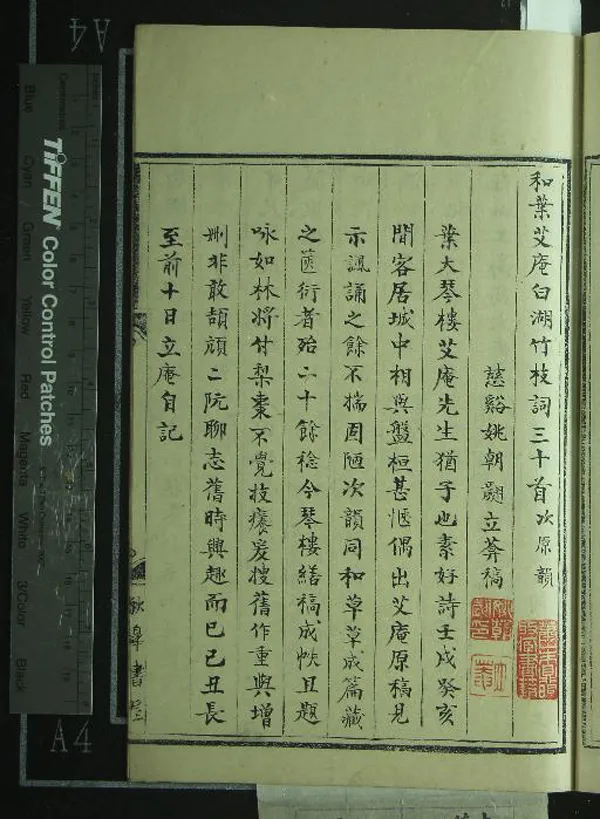 和葉艾庵白湖竹枝詞三十首次原韻
慈谿姚朝翽立菴稿
葉大琴樓艾庵先生猶子也素好詩壬戌癸亥
間客居城中相與盤桓甚愜偶出艾庵原稿見
示諷誦之餘不揣固陋次韻同和草草成篇藏
之篋衍者殆二十餘稔今琴樓繕稿成帙且題
咏如林將付梨棗不覺技癢爰搜舊作重與增
刪非敢頡頏二阮聊志舊時興趣而已己丑長
至前十日立庵自記
皋書
TIFFEN Color Control Patches
Blue
Cyan
Green
Yellow
Red
Magenta
White
3/Color
Black
Centimetres
A4
A4